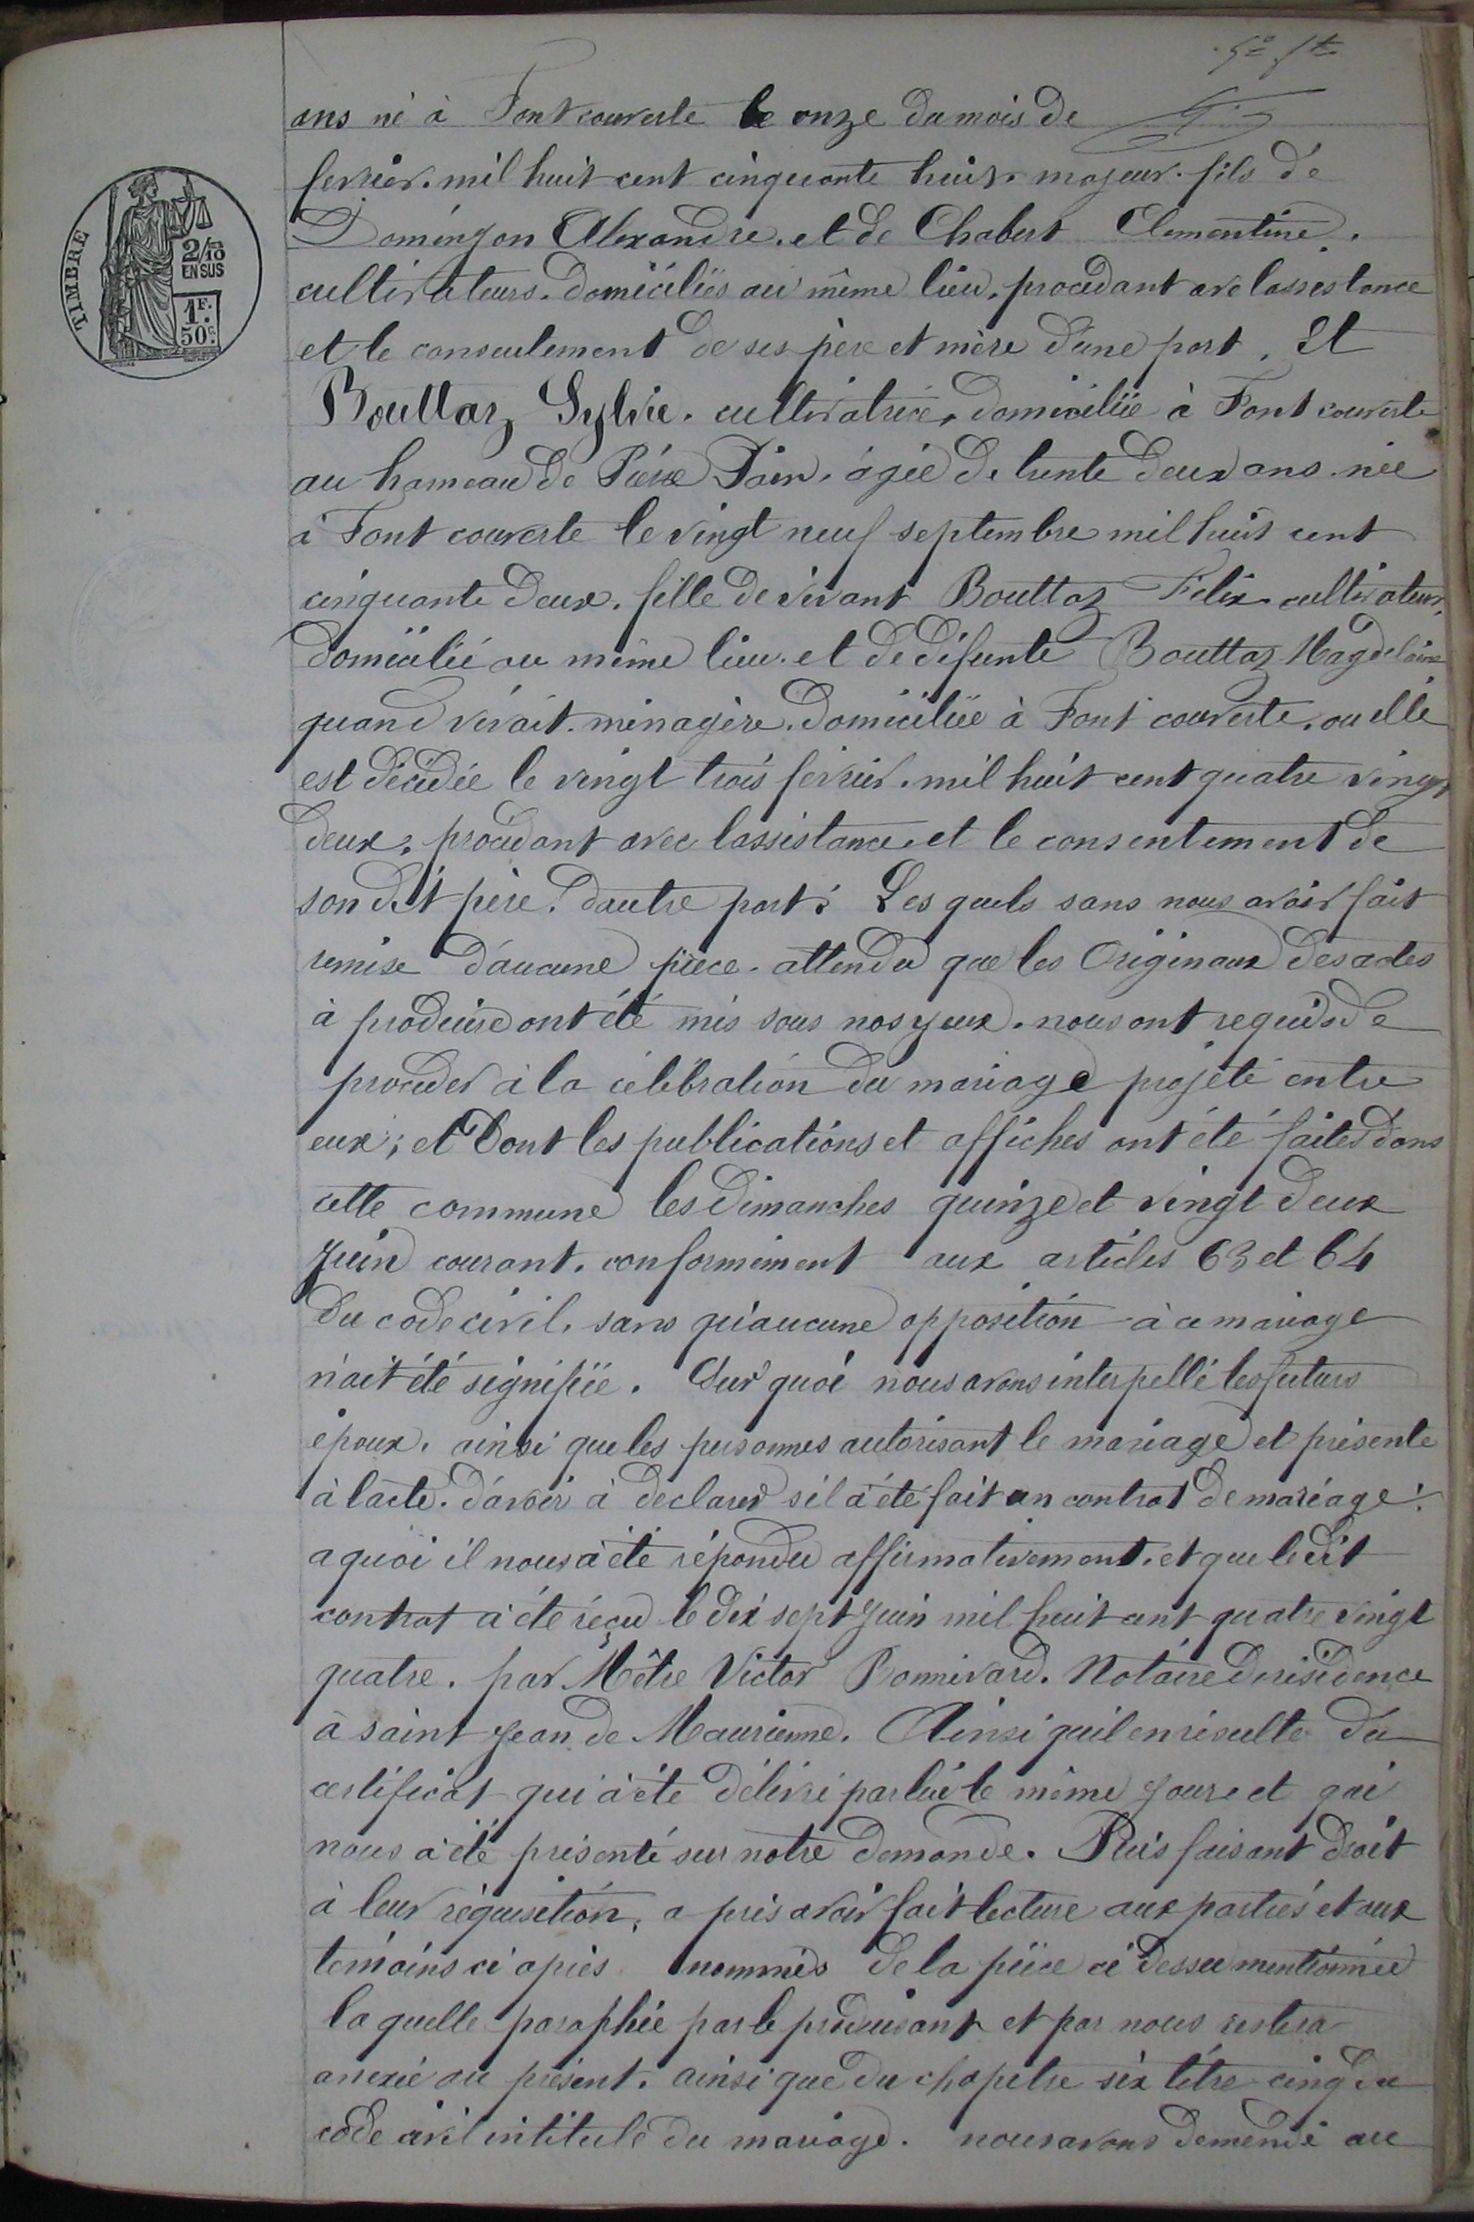 5e ft
ans né à Fontcouverte le onze du mois de
fevrier. mil huit cent cinquante huit. majeur. fils de
Domenjon Alexandre. et de Chabert Clementine.
cultivateurs. domiciliés au même lieu. procedant avec lassistance
et le consentement de ses père et mère d'une part. Et
Bouttaz Sylvie. cultivatrice, domiciliée à Font couverte
au hameau de Pierre Pain. agée de trente deux ans née
à Font couverte le vingt neuf septembre mil huit cent
cinquante deux. fille de vivant Bouttaz Félix cultivateur.
domicilié au même lieu. et de défunte Bouttaz Magdelaine
quand vivait. ménagère. domiciliée à Font couverte. ou elle
est décédée le vingt trois fevrier. mil huit cent quatre vingt
deux, procédant avec lassistance. et le consentement de
son dit père. dautre part. Les quels sans nous avoir fait
remise d'aucune pièce. attendu que les Originaux des actes
à produire ont été mis sous nos yeux. nous ont requis de
proceder à la célébration du mariage projété entre
eux; et Dont les publications et affiches ont été faites dans
cette commune les Dimanches quinze et vingt deux
Juin courant. conformément aux articles 63 et 64
du code civil. sans qu'aucune opposition à ce mariage
n'ait été signifiée. Sur quoi nous avons interpellé les futurs
époux. ainsi que les personnes autorisant le mariage et présente
à lacte. d'avoir à declarer s'il à été fait un contrat de mariage.
a quoi il nous à été répondu affirmativement. et que ledit
contrat à été reçu le dix sept Juin mil huit cent quatre vingt
quatre. par Mêtre Victor Bonnivard. Notaire de résidence
à saint Jean de Maurienne. Ainsi quil en résulte du
certificat qui à été délivré par lui le même jour. et qui
nous à été présenté sur notre demande. Puis faisant droit
à leur réquisition, a près avoir fait lecture aux parties et aux
témoins ci après nommés de la pièce ci dessu mentionnée
la quelle paraphée par le produisant et par nous restera
anexée au présent. ainsi que du chapitre six têtre cinq du
code civil intitulé du mariage. nous avons demendé au
TIMBRE
2/10
EN SUS
1F.
50c.